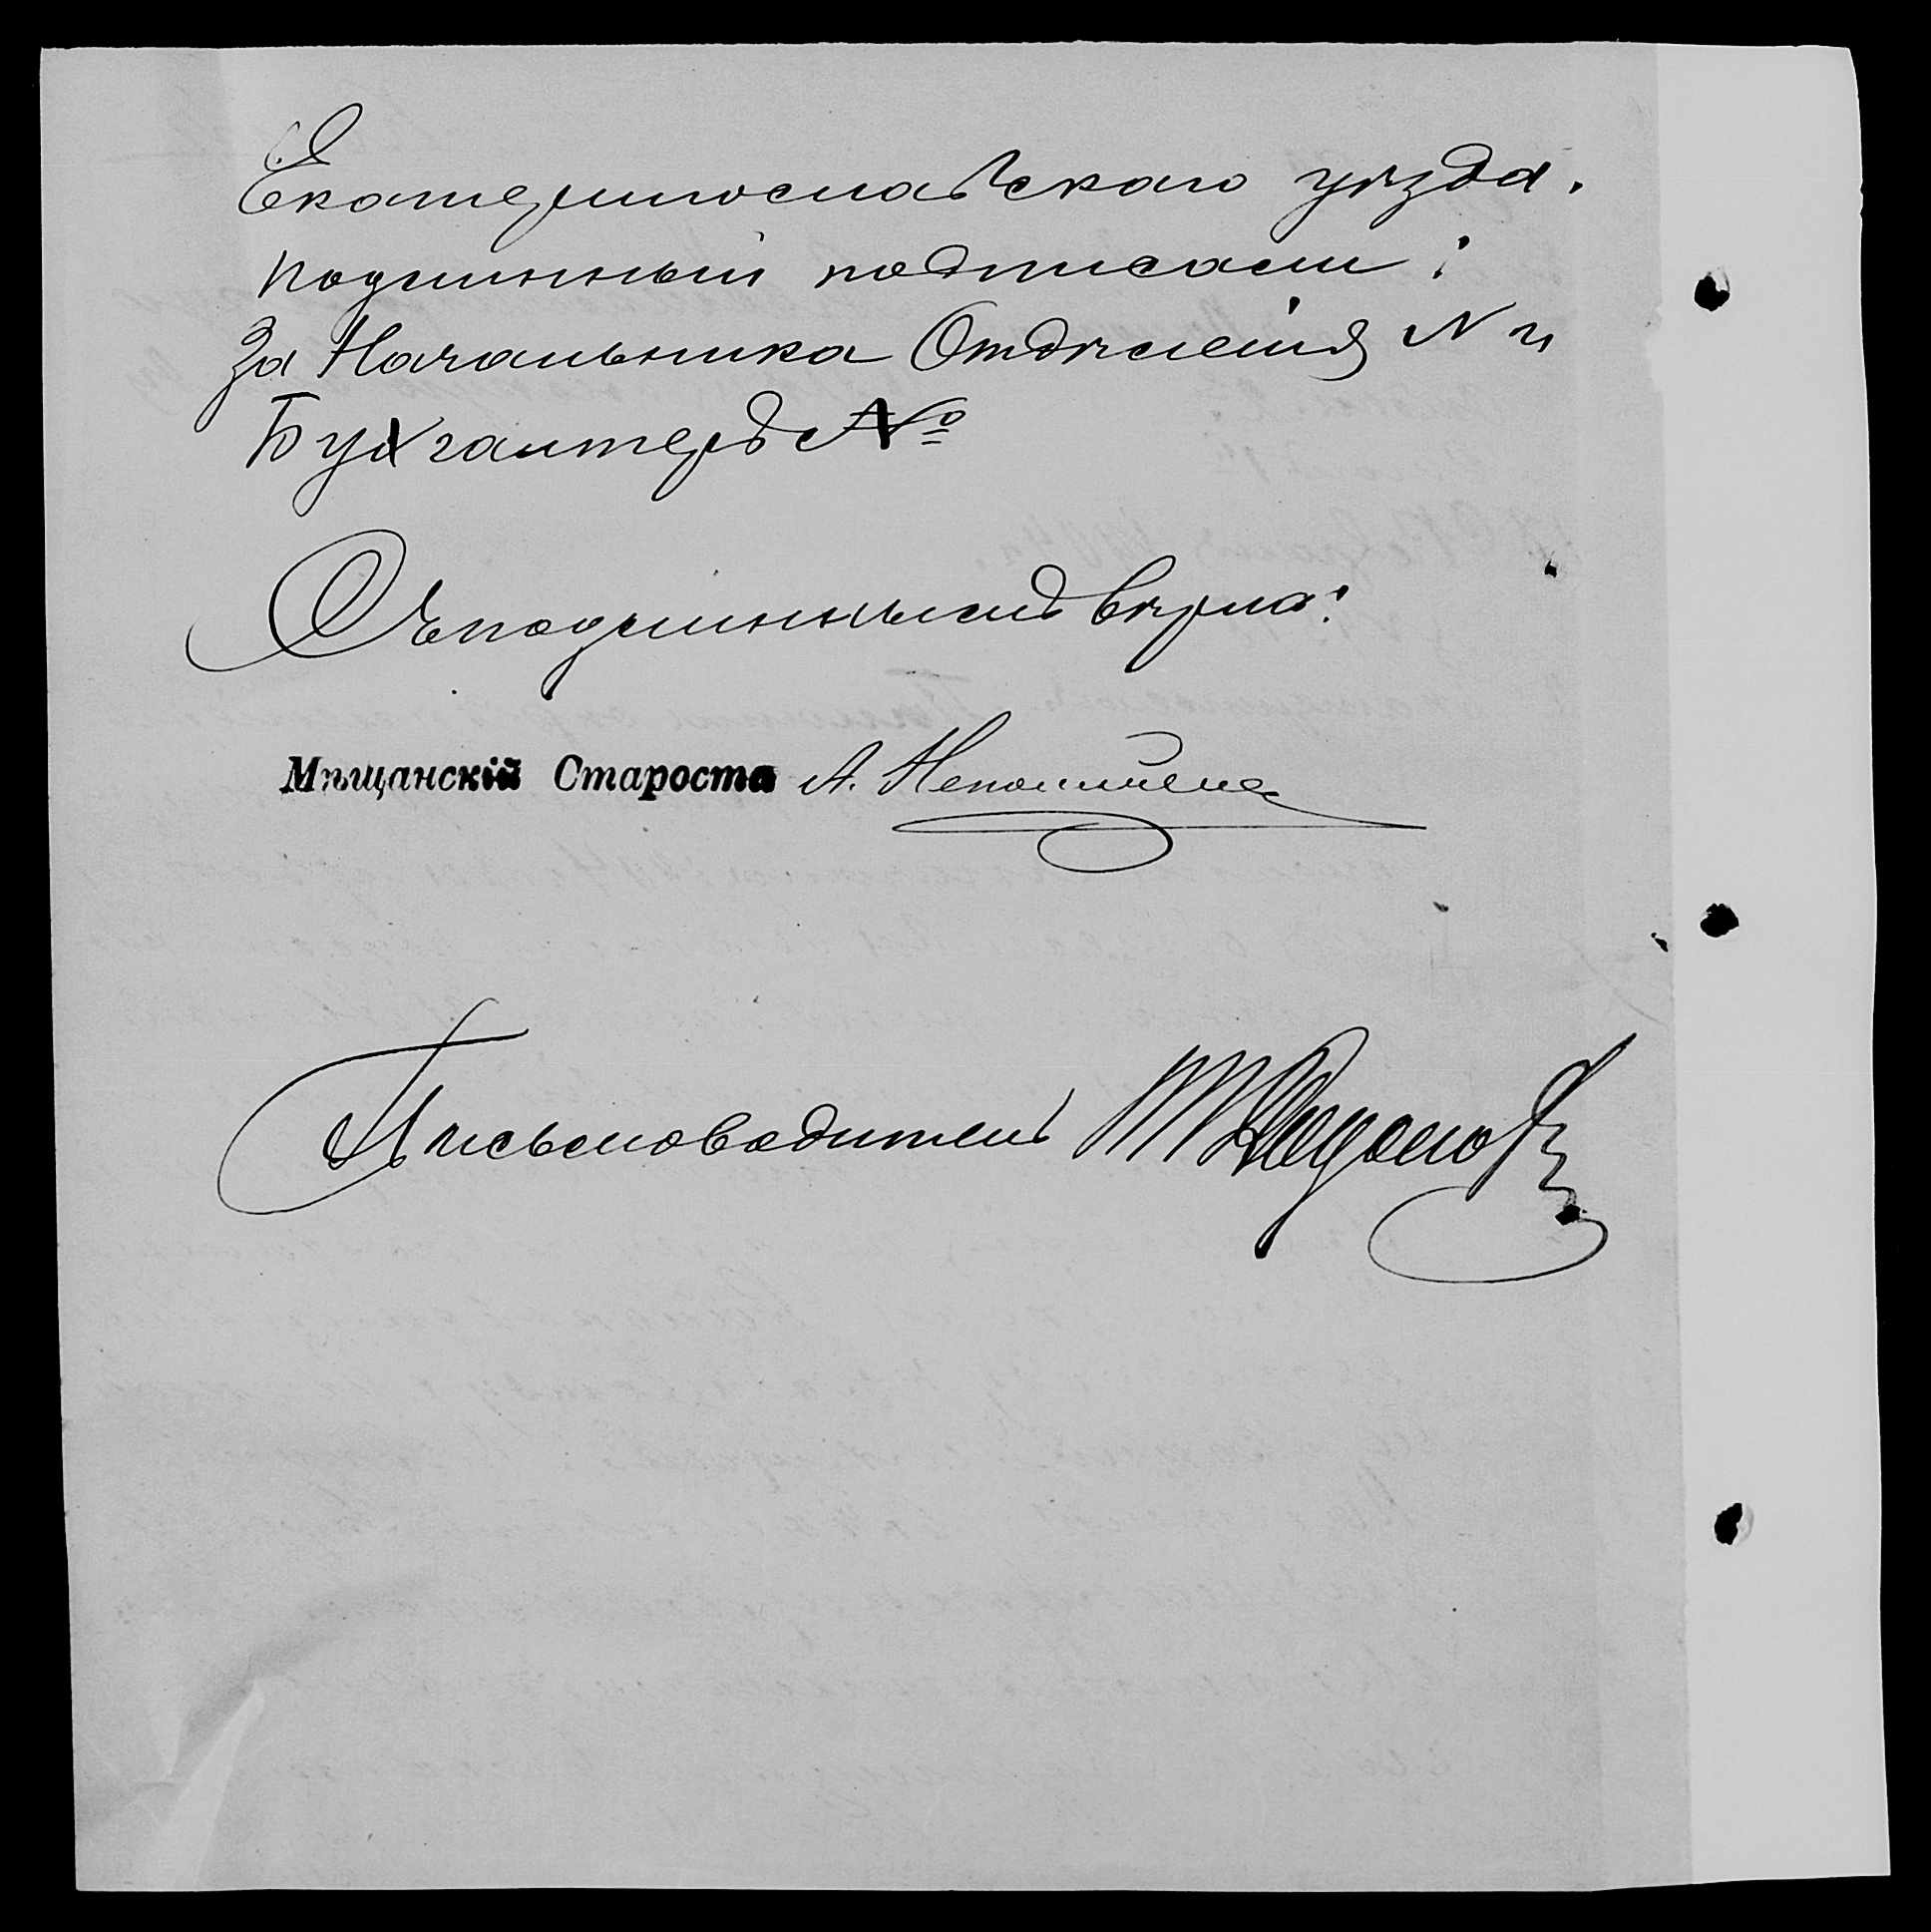 Екатеринославскаго уѣзда.
подлинный подписали:
За Начальника Отдѣленія N и
Бухгалтеръ №
Съ подлиннымъ вѣрно:
Мѣщанскій Староста А.
Письмоводитель